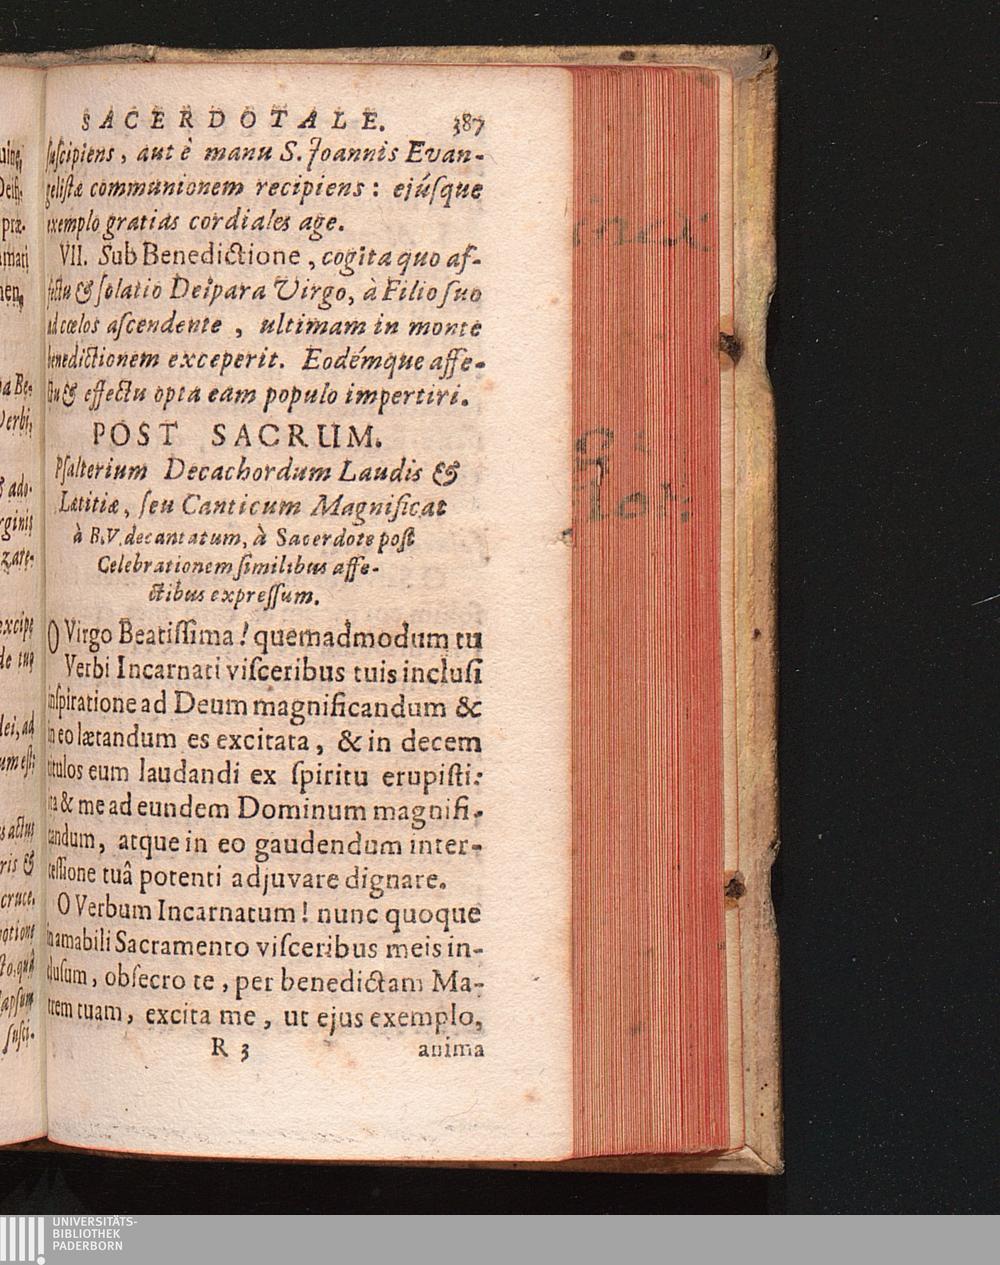 SACERDOTALE. 387
ſuſcipiens, aut è manu S. Joannis Evan-
geliſtæ communionem recipiens : ejúſque
exemplo gratias cordiales age.
VII. Sub Benedictione, cogita quo af-
fectu & ſolatio Deipara Virgo, à Filio ſuo
ad cœlos aſcendente, ultimam in monte
benedictionem exceperit. Eodémque affe-
ctu & effectu opta eam populo impertiri.
POST SACRUM.
Pſalterium Decachordum Laudis &
Lætitiæ, ſeu Canticum Magnificat
à B.V. decantatum, à Sacerdote poſt
Celebrationem ſimilibus affe-
ctibus expreſſum.
O Virgo Beatiſſima! quemadmodum tu
Verbi Incarnati viſceribus tuis incluſi
inſpiratione ad Deum magnificandum &
in eo lætandum es excitata, & in decem
titulos eum laudandi ex ſpiritu erupiſti:
ita & me ad eundem Dominum magnifi-
candum, atque in eo gaudendum inter-
ceſſione tuâ potenti adjuvare dignare.
O Verbum Incarnatum! nunc quoque
in amabili Sacramento viſceribus meis in-
cluſum, obſecro te, per benedictam Ma-
trem tuam, excita me, ut ejus exemplo,
R 3 anima
UNIVERSITÄTS-
BIBLIOTHEK
PADERBORN